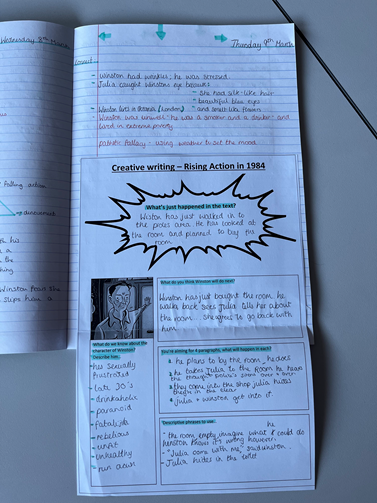 Wednesday 8th March
Thursday 9th March
- Winston had wrinkles; he was stressed.
- Julia caught Winstons eye because:
- She had silk-like hair
- beautiful blue eyes
- and small-like figure
- Winston lives in Oceania (London)
- Winston was unwell - he was a smoker and a drinker - and
lived in extreme poverty
pathetic fallacy: using weather to set the mood.
falling action
denouement
Creative writing – Rising Action in 1984
What's just happened in the text?
Winston has just walked in to
the proles area. He has looked at
the room and planned to buy the
room.
What do you think Winston will do next?
Winston has just bought the room he
walk back sees Julia tells her about
the room. She agrees to go back with
him.
What do we know about the
character of Winston?
Describe him.
- his sexually
frustrated
- late 30's
- drinkaholic
- paranoid
- fatalistic
- rebelious
- unhealthy
You're aiming for 4 paragraphs, what will happen in each?
he plans to by the room, he does
he takes Julia to the room he hears
they come into the shop julia hides
julia + winston get into it.
Descriptive phrases to use:
- the room empty imagine what I could do he
winston knows it's wrong however.
- "Julia come with me" said winston.
- Julia hides in the toilet